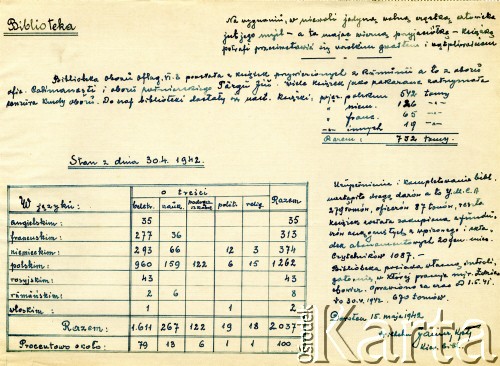 Biblioteka
Na wygnaniu, w niewoli jedyną wolną cząstką człowieka
jest jego myśl - a tą mając wierną przyjaciółkę - książkę
potrafi przeciwstawić się wszelkim
Biblioteka obozu oflag. VI. E powstała z książek przywiezionych z Rumunii a to z obozu
ofic. Calimanesti i obozu Târgu Jiu. Wiele książek jako zakazane zatrzymała
cenzura obozu. Do naszej biblioteki dostały się nast. książki, w jęz. polskim 542 tomy
" niem. 126 -"-
" franc. 65 -"-
" innych 19 -"-
Razem: 752 tomy.
Stan z dnia 30.4. 1942.
W języku: o treści Razem
beletr. nauk. polit. relig.
angielskim: 35 35
francuskim: 277 36 313
niemieckim: 293 66 12 3 374
polskim: 960 159 122 6 15 1262
rosyjskim: 43 43
rumuńskim: 2 6 8
włoskim: 1 1 2
Razem: 1.611 267 122 19 18 2.037
Procentowo około: 79 13 6 1 1 100
Uzupełnienie i kompletowanie bibl.
nastąpiło drogą darów a to Y.M.C.A
279 tomów, oficerów 87 tomów, reszta
książek została zakupiona z fundu-
Czytelników 1087.-
Biblioteka posiada własną introli-
gatornię, w której pracuje
Oprawiono za czas od 1.5.41
do 30.4.1942. 670 tomów.
Dorsten 15. maja 1942
ośrodek
Karta